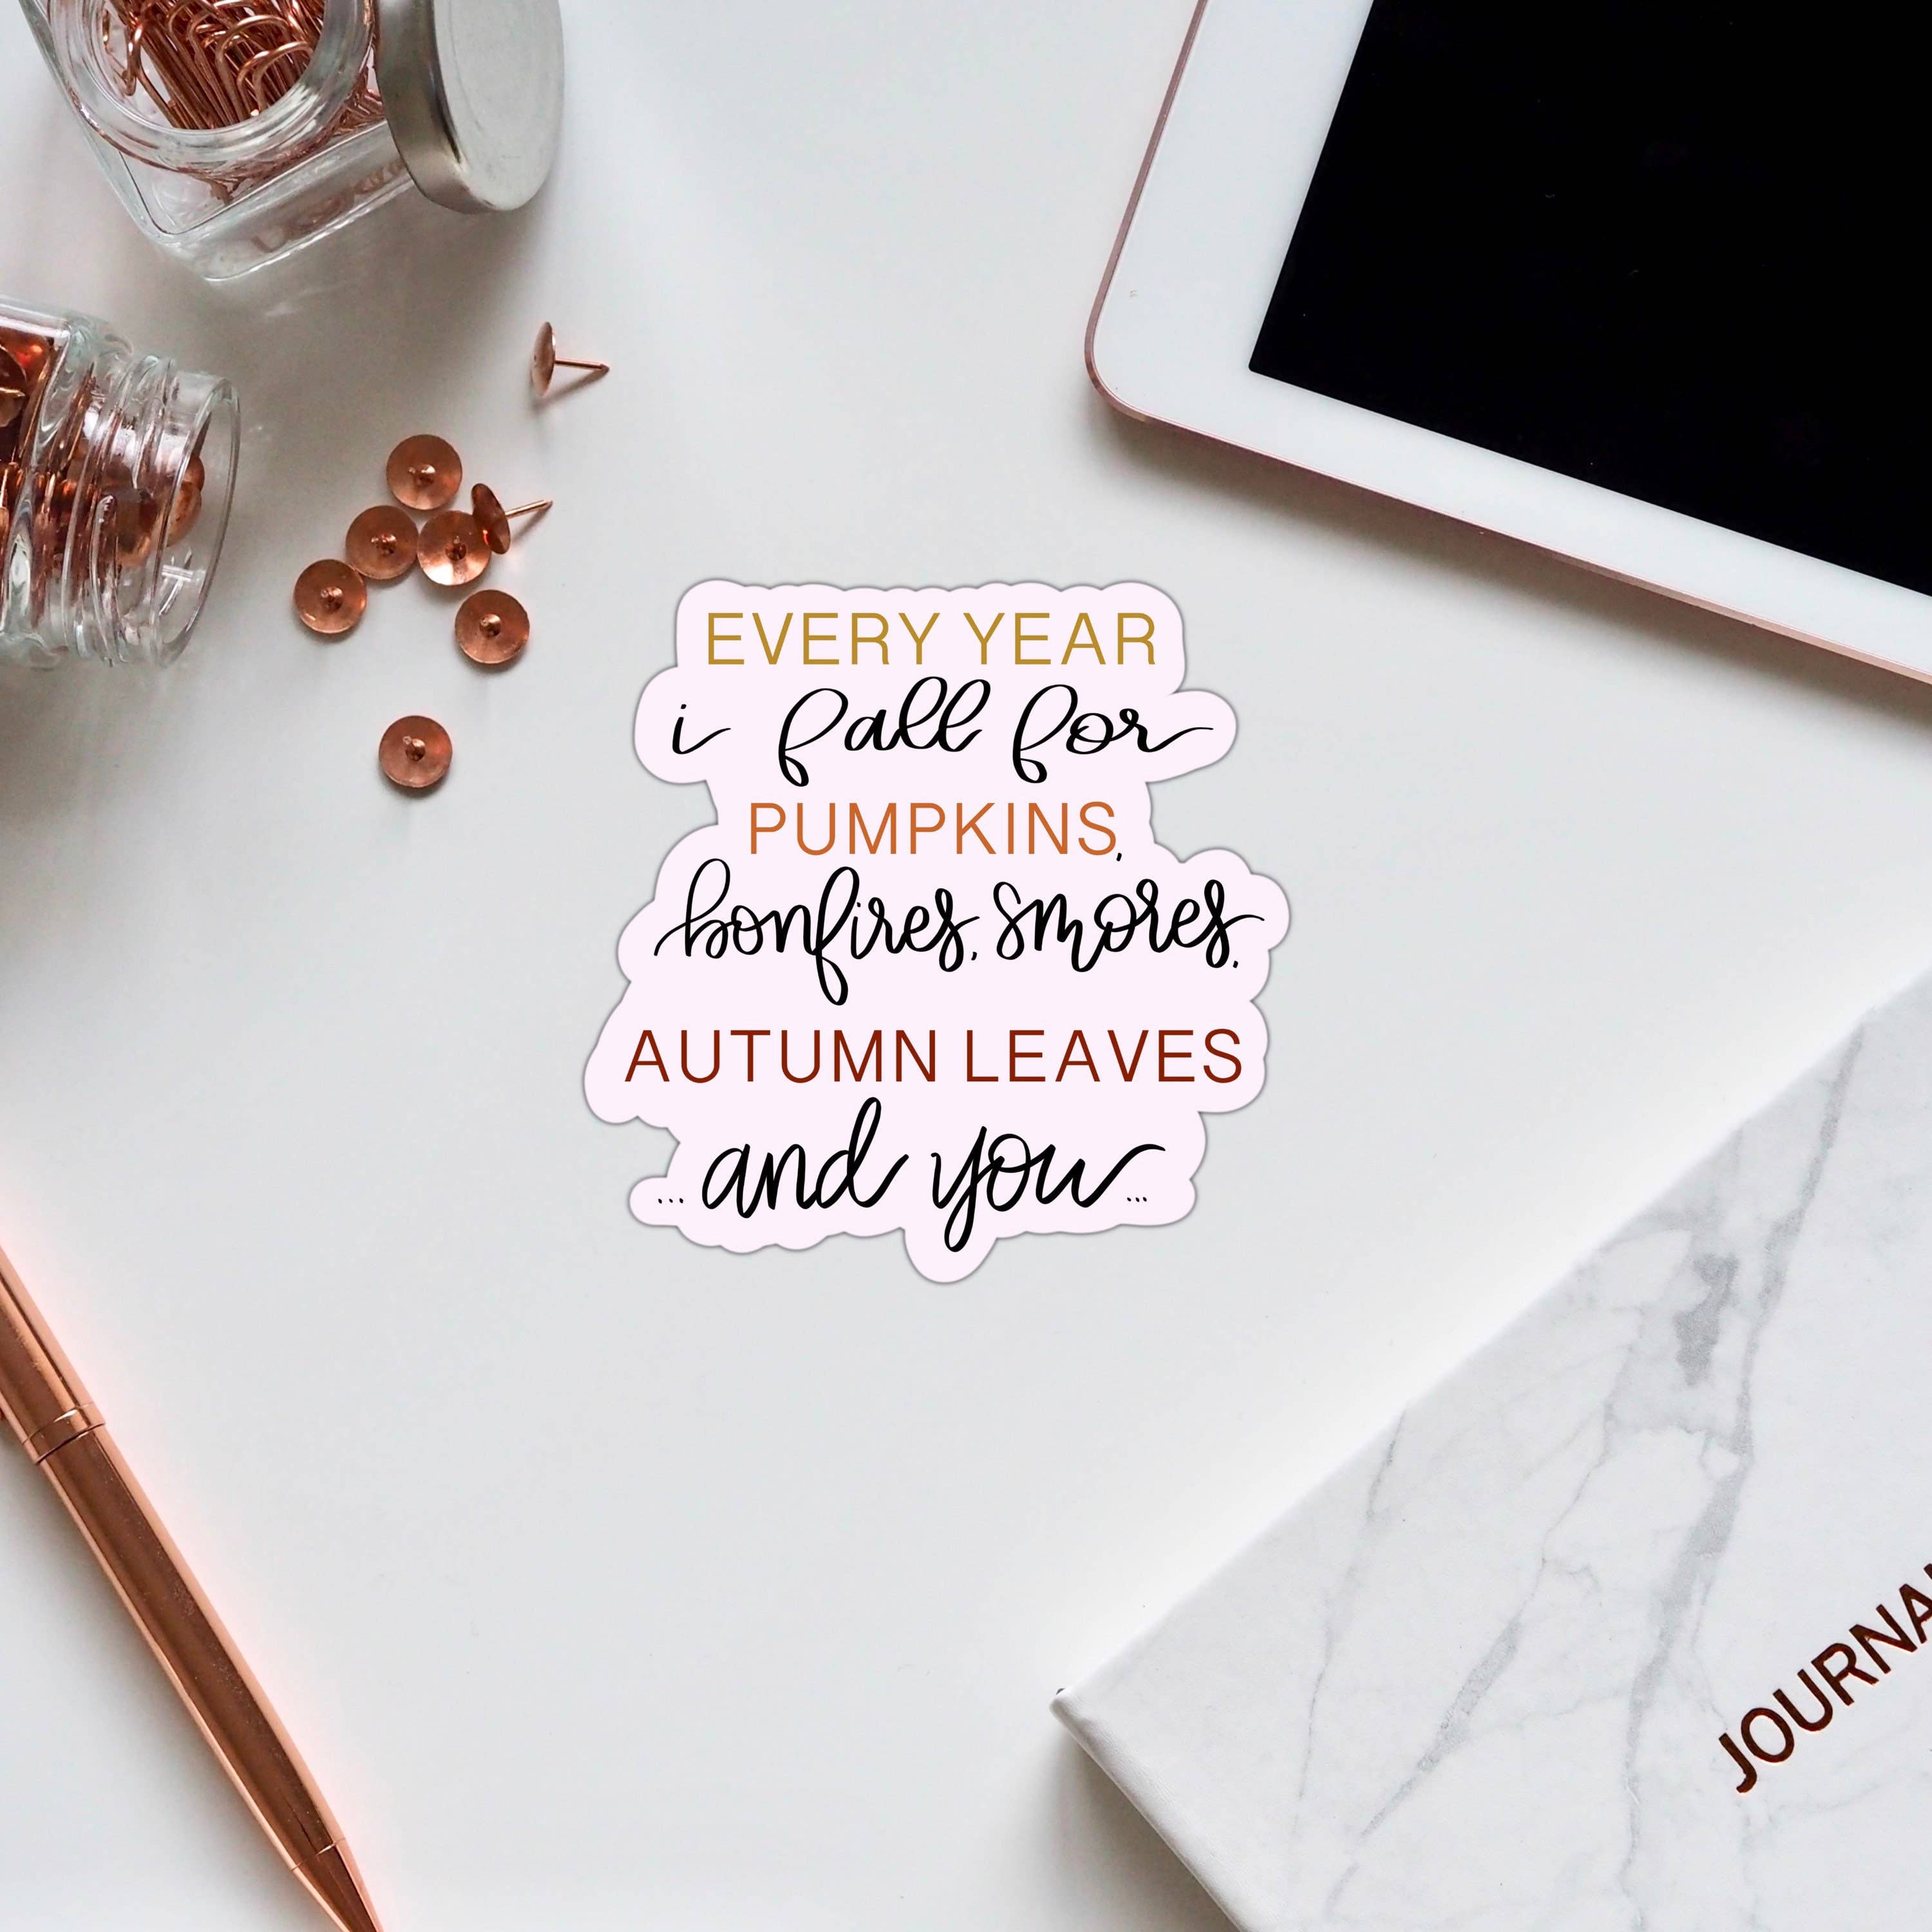 EVERY YEAR
i fall for
PUMPKINS,
bonfires, smores,
AUTUMN LEAVES
... and you ...
JOURNA